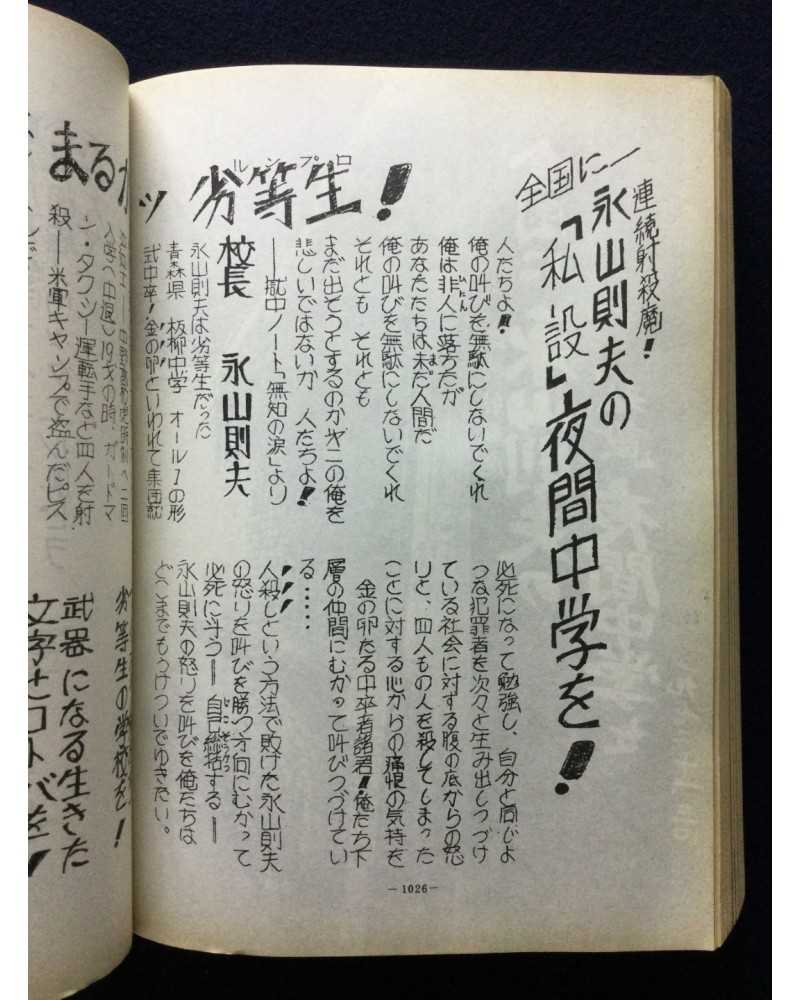 連続射殺魔!
全国に一
永山則夫の
「私設」夜間中学を!
人たちよ!
俺の叫びを無駄にしないでくれ
俺は非人に落ちたが
あなたたちは未だ人間だ
俺の叫びを無駄にしないでくれ
それとも それとも
まだ出そうとするのか 二の俺を
悲しいではないか 人たちよ!
──獄中ノート「無知の涙」より
校長 永山則夫
永山則夫は劣等生だった
青森県 板柳中学 オール1の形
式中卒!金の卵といわれて集団就
必死になって勉強し、自分と同じよ
うな犯罪者を次々と生み出しつづけ
ている社会に対する腹の底からの怒
りと、四人もの人を殺してしまった
ことに対する心からの痛恨の気持を
金の卵たる中卒者諸君!俺たち下
層の仲間にむかって叫びつづけてい
る……
人殺しという方法で敗けた永山則夫
の怒りを叫びを勝つ方向にむかって
必死に斗う── 自己総括する──
永山則夫の怒りを叫びを俺たちは
どこまでもうけついでゆきたい。
まるが
ッ 劣等生!
ルンプロ
入学へ中退)19才の時、ガードマ
ン・タクシー運転手など四人を射
殺──米軍キャンプで盗んだピス
劣等生の学校を!
武器になる生きた
文字とコトバを!
—1026—